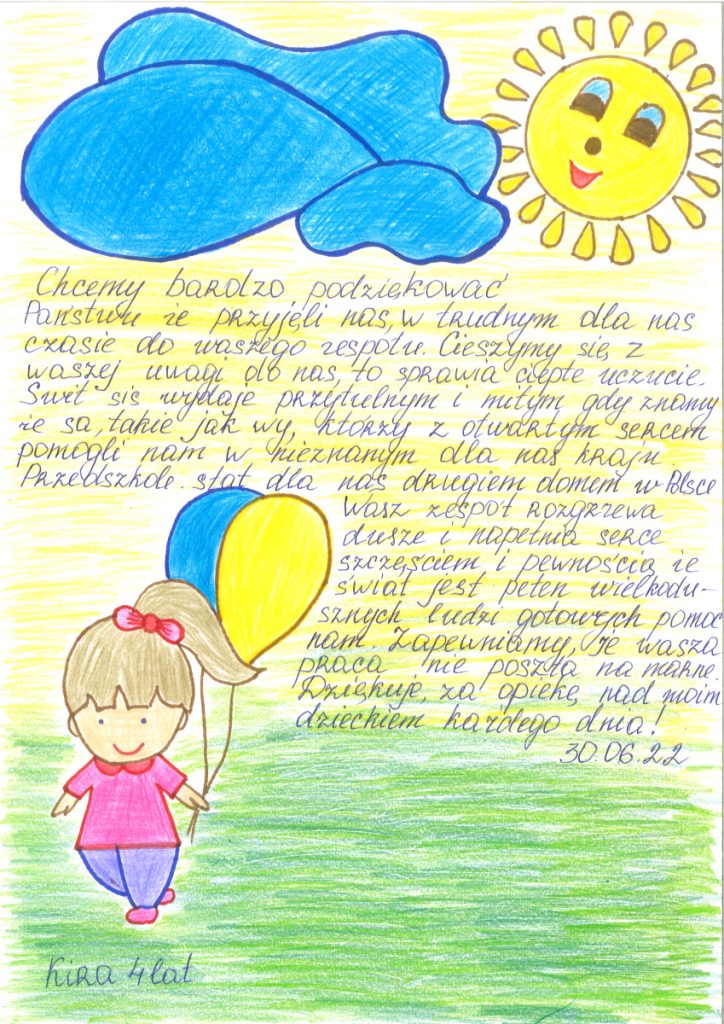 Chcemy bardzo podziękować
Państwu że przyjęli nas, w trudnym dla nas
czasie do waszego zespołu. Cieszymy się, z
waszej uwagi do nas, to sprawia ciepłe uczucie.
Swit sis wydaje przytulnym i miłym gdy znamy
że są, takie jak wy, ktorzy z otwartym sercem
pomogli nam w nieznanym dla nas kraju.
Przedszkole. stał dla nas drugiem domem w Polsce
Wasz zespół rozgrzewa
dusze i napełnia serce
szczęściem i pewnością, że
świat jest pełen wielkodu-
sznych ludzi gotowych pomoc
nam. Zapewniamy, że wasza
praca nie poszła na marne.
Dziękuję, za opiekę, nad moim
dzieckiem każdego dnia!
30.06.22
Kira 4 lat